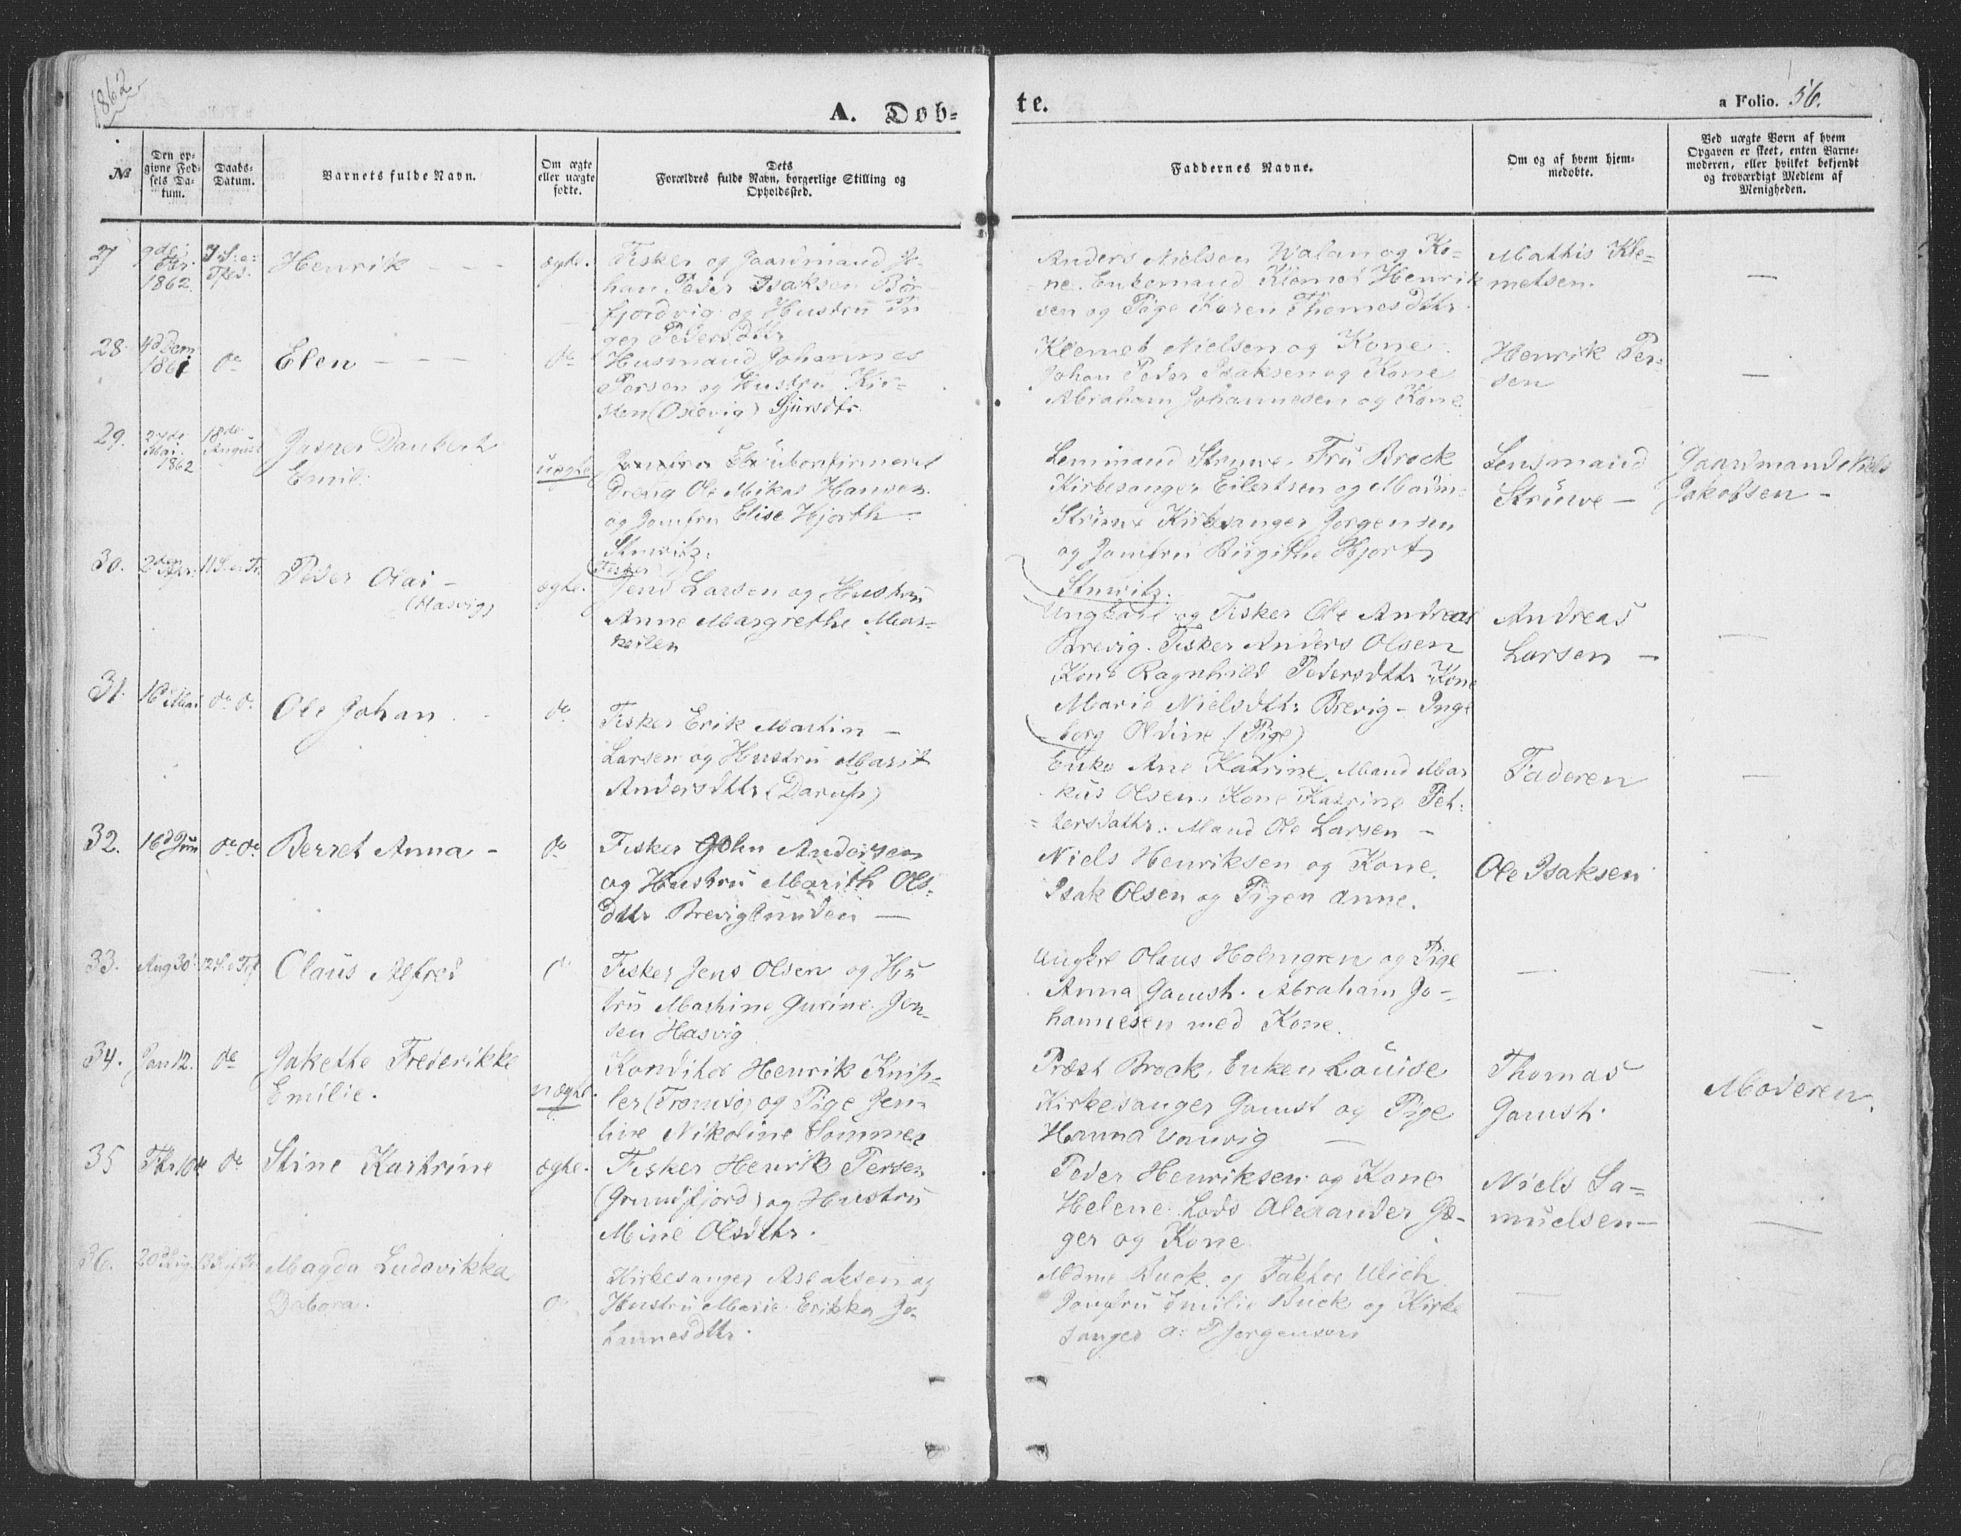 1862
A. Døb-
te.
a Folio. 56.
№
Den op-
givne Fød-
sels Da-
tum.
Daabs-
Datum.
Barnets fulde Navn.
Om ægte
eller uægte
fødte.
Dets
Forældres fulde Navn, borgerlige Stilling og
Opholdssted.
Faddernes Navne.
Om og af hvem hjem-
medøbte.
Ved uægte Børn af hvem
Opgaven er skeet, enten Barne-
moderen, eller hvilket bekjendt
og troværdigt Medlem af
Menigheden.
27
1862.
Henrik - - -
ægte.
Fisker og Gaardmand Jo-
han Peder Isaksen Bør-
fjordvig og Hustru In
ger Pedersdttr
Anders Nielsen Walan og Ko-
ne. Enkemand Klemet Henrik
sen og Pige Karen Thomesdttr
Mathis Kle-
metsen.
—
28.
1861
do
Elen - - -
do
Husmand Johannes
Persen og Hustru Kir-
sten (Oxevig) Sjursdtr.
Klemet Nielsen og Kone.
Johan Peder Isaksen og Kone
Abraham Johannesen og Kone
Henrik Per-
sen
—
29.
27de
Mai
1862
18de
August
Jasper Daubert
Emil.
uægte
ukonfirmeret
Dreng Ole Mikas Hansen
og Jomfru Elise Hjorth
Stuwitz.
Lensmand Struwe. Fru Brock
Kirkesanger Eilertsen og Madm-
Struwe Kirkesanger Jørgensen
og Jomfru Birgithe Hjort
Stuwitz.
Lensmand
Struwe —
Gaardmand Niels
Jakobsen —
30.
Peder Olai -
(Hasvig)
ægte.
(Fisker)
Jens Larsen og Hustru
Anne Margrethe Mar-
keilen
Ungkarl og Fisker Ole Andreas
Brevig. Fisker Anders Olsen
Kone Ragnhild Pedersdttr Kone
Marie Nielsdttr Brevig - Inge
borg Oldine (Pige)
Andreas
Larsen —
—
31.
16 Mai
do do
Ole Johan
do
Fisker Erik Martin -
Larsen og Hustru Marit
Andersdttr (Darup)
Enke Ane Katrine. Mand Mar
kus Olsen. Kone Katrine Pet-
tersdattr. Mand Ole Larsen —
Faderen
—
32.
16d Juni
do do
Berret Anna -
do
Fisker John Andersen
og Hustru Marith Ols-
dttr Breviglunden —
Niels Henriksen og Kone.
Isak Olsen og Pigen Anne.
Ole Isaksen
33.
Aug 30
Claus Alfred
do
Fisker Jens Olsen og Hu
tru Mashine Gurine Jon-
sen Hasvig
Ungkrl Olaus Holmgren og Pige
Anna Gamst. Abraham Jo-
hannesen med Kone.
—
—
34.
Jan 12.
do
Jakette Frederikke
Emilie.
uægte.
Kandidat Henrik Knip-
ler (Tromsø) og Pige Jen-
line Nikoline Sommer
Præst Brock, Enken Louise
Kirkesanger Gamst og Pige
Hanna Vauvig —
Thomas
Gamst.
Moderen.
35
do
Stine Kartrine
ægte.
Fisker Henrik Persen
(Grundfjord) og Hustru
Mine Olsdttr.
Peder Henriksen og Kone
Helene. Lods Alexander Jæ-
ger og Kone
Niels Sa-
muelsen —
—
36.
Magda Ludovikka
Debora.
do
Kirkesanger Aslaksen og
Hustru Marie Erikka Jo-
hannesdttr.
Mdme Buck. og Faktor Ulich
Jomfru Emilie Buck og Kirke
sanger Jørgensen
—